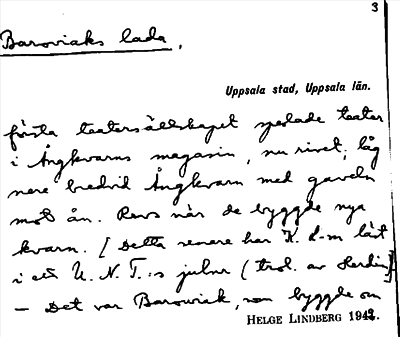 3
Barowiaks lada,
Uppsala stad, Uppsala län.
första teatersällskapet spelade teater
i Ångkvarns magasin, nu rivet; låg
nere bredvid Ångkvarn med gaveln
mot ån. Revs när de byggde nya
kvarn. [Detta senare har K. L-m läst
i ett U.N.T.:s julnr (trol. av Herdin)]
– Det var Barowiak, som byggde om
HELGE LINDBERG 1942.